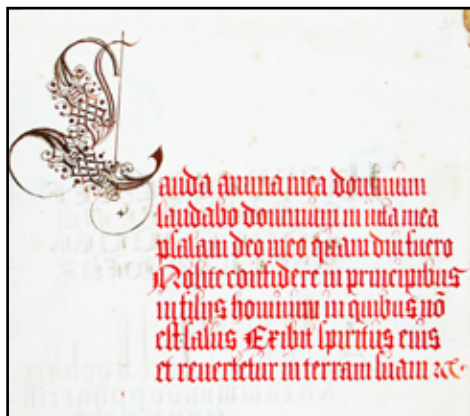 Lauda anima mea dominum
laudabo dominum in vita mea
psalam deo meo quam diu fuero
Nolite confidere in principibus
in filijs hominum in quibus nō
est salus Exibit spiritus eius
et revertetur in terram suam ⁊c.